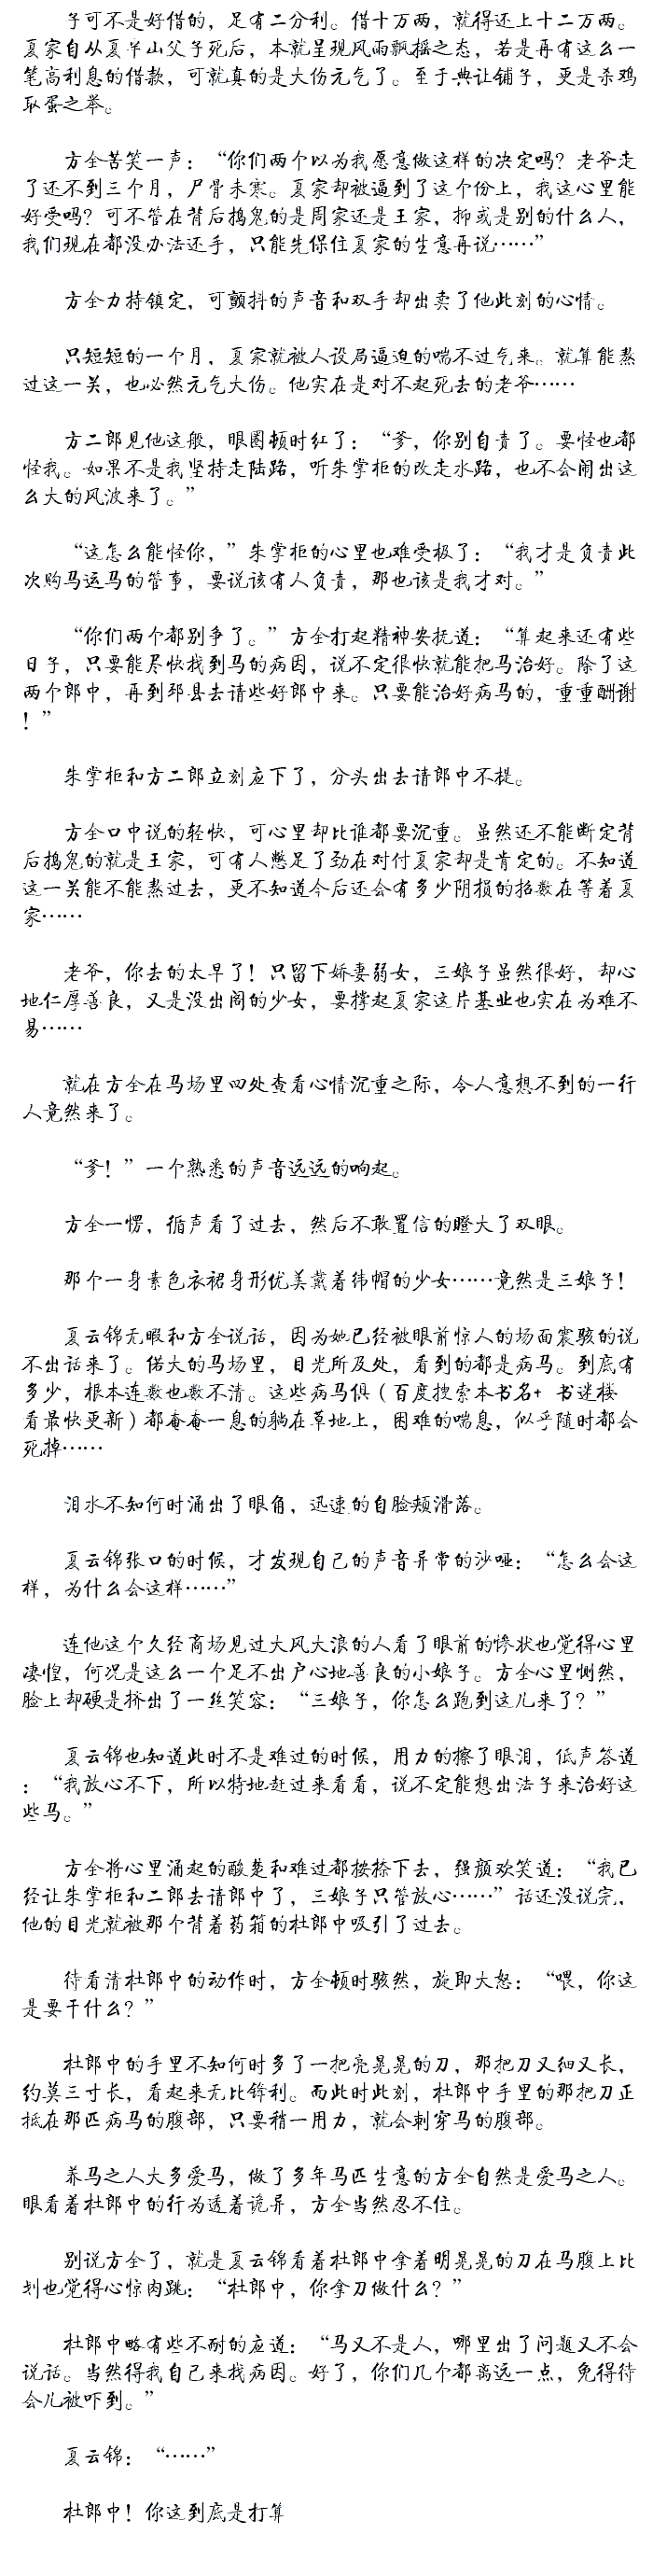 子可不是好借的，足有二分利。借十万两，就得还上十二万两。
夏家自从夏半山父子死后，本就呈现风雨飘摇之态，若是再有这么一
笔高利息的借款，可就真的是大伤元气了。至于典让铺子，更是杀鸡
取蛋之举。
方全苦笑一声：“你们两个以为我愿意做这样的决定吗？老爷走
了还不到三个月，尸骨未寒。夏家却被逼到了这个份上，我这心里能
好受吗？可不管在背后捣鬼的是周家还是王家，抑或是别的什么人，
我们现在都没办法还手，只能先保住夏家的生意再说……”
方全力持镇定，可颤抖的声音和双手却出卖了他此刻的心情。
只短短的一个月，夏家就被人设局逼迫的喘不过气来。就算能熬
过这一关，也必然元气大伤。他实在是对不起死去的老爷……
方二郎见他这般，眼圈顿时红了：“爹，你别自责了。要怪也都
怪我。如果不是我坚持走陆路，听朱掌柜的改走水路，也不会闹出这
么大的风波来了。”
“这怎么能怪你，”朱掌柜的心里也难受极了：“我才是负责此
次购马运马的管事，要说该有人负责，那也该是我才对。”
“你们两个都别争了。”方全打起精神安抚道：“算起来还有些
日子，只要能尽快找到马的病因，说不定很快就能把马治好。除了这
两个郎中，再到邳县去请些好郎中来。只要能治好病马的，重重酬谢
！”
朱掌柜和方二郎立刻应下了，分头出去请郎中不提。
方全口中说的轻快，可心里却比谁都要沉重。虽然还不能断定背
后捣鬼的就是王家，可有人憋足了劲在对付夏家却是肯定的。不知道
这一关能不能熬过去，更不知道今后还会有多少阴损的招数在等着夏
家……
老爷，你去的太早了！只留下娇妻弱女，三娘子虽然很好，却心
地仁厚善良，又是没出阁的少女，要撑起夏家这片基业也实在为难不
易……
就在方全在马场里四处查看心情沉重之际，令人意想不到的一行
人竟然来了。
“爹！”一个熟悉的声音远远的响起。
方全一愣，循声看了过去，然后不敢置信的瞪大了双眼。
那个一身素色衣裙身形优美戴着纬帽的少女……竟然是三娘子！
夏云锦无暇和方全说话，因为她已经被眼前惊人的场面震骇的说
不出话来了。偌大的马场里，目光所及处，看到的都是病马。到底有
多少，根本连数也数不清。这些病马俱（百度搜索本书名+ 书迷楼
看最快更新）都奄奄一息的躺在草地上，困难的喘息，似乎随时都会
死掉……
泪水不知何时涌出了眼角，迅速的自脸颊滑落。
夏云锦张口的时候，才发现自己的声音异常的沙哑：“怎么会这
样，为什么会这样……”
连他这个久经商场见过大风大浪的人看了眼前的惨状也觉得心里
凄惶，何况是这么一个足不出户心地善良的小娘子。方全心里恻然，
脸上却硬是挤出了一丝笑容：“三娘子，你怎么跑到这儿来了？”
夏云锦也知道此时不是难过的时候，用力的擦了眼泪，低声答道
：“我放心不下，所以特地赶过来看看，说不定能想出法子来治好这
些马。”
方全将心里涌起的酸楚和难过都按捺下去，强颜欢笑道：“我已
经让朱掌柜和二郎去请郎中了，三娘子只管放心……”话还没说完，
他的目光就被那个背着药箱的杜郎中吸引了过去。
待看清杜郎中的动作时，方全顿时骇然，旋即大怒：“喂，你这
是要干什么？”
杜郎中的手里不知何时多了一把亮晃晃的刀，那把刀又细又长，
约莫三寸长，看起来无比锋利。而此时此刻，杜郎中手里的那把刀正
抵在那匹病马的腹部，只要稍一用力，就会刺穿马的腹部。
养马之人大多爱马，做了多年马匹生意的方全自然是爱马之人。
眼看着杜郎中的行为透着诡异，方全当然忍不住。
别说方全了，就是夏云锦看着杜郎中拿着明晃晃的刀在马腹上比
划也觉得心惊肉跳：“杜郎中，你拿刀做什么？”
杜郎中略有些不耐的应道：“马又不是人，哪里出了问题又不会
说话。当然得我自己来找病因。好了，你们几个都离远一点，免得待
会儿被吓到。”
夏云锦：“……”
杜郎中！你这到底是打算